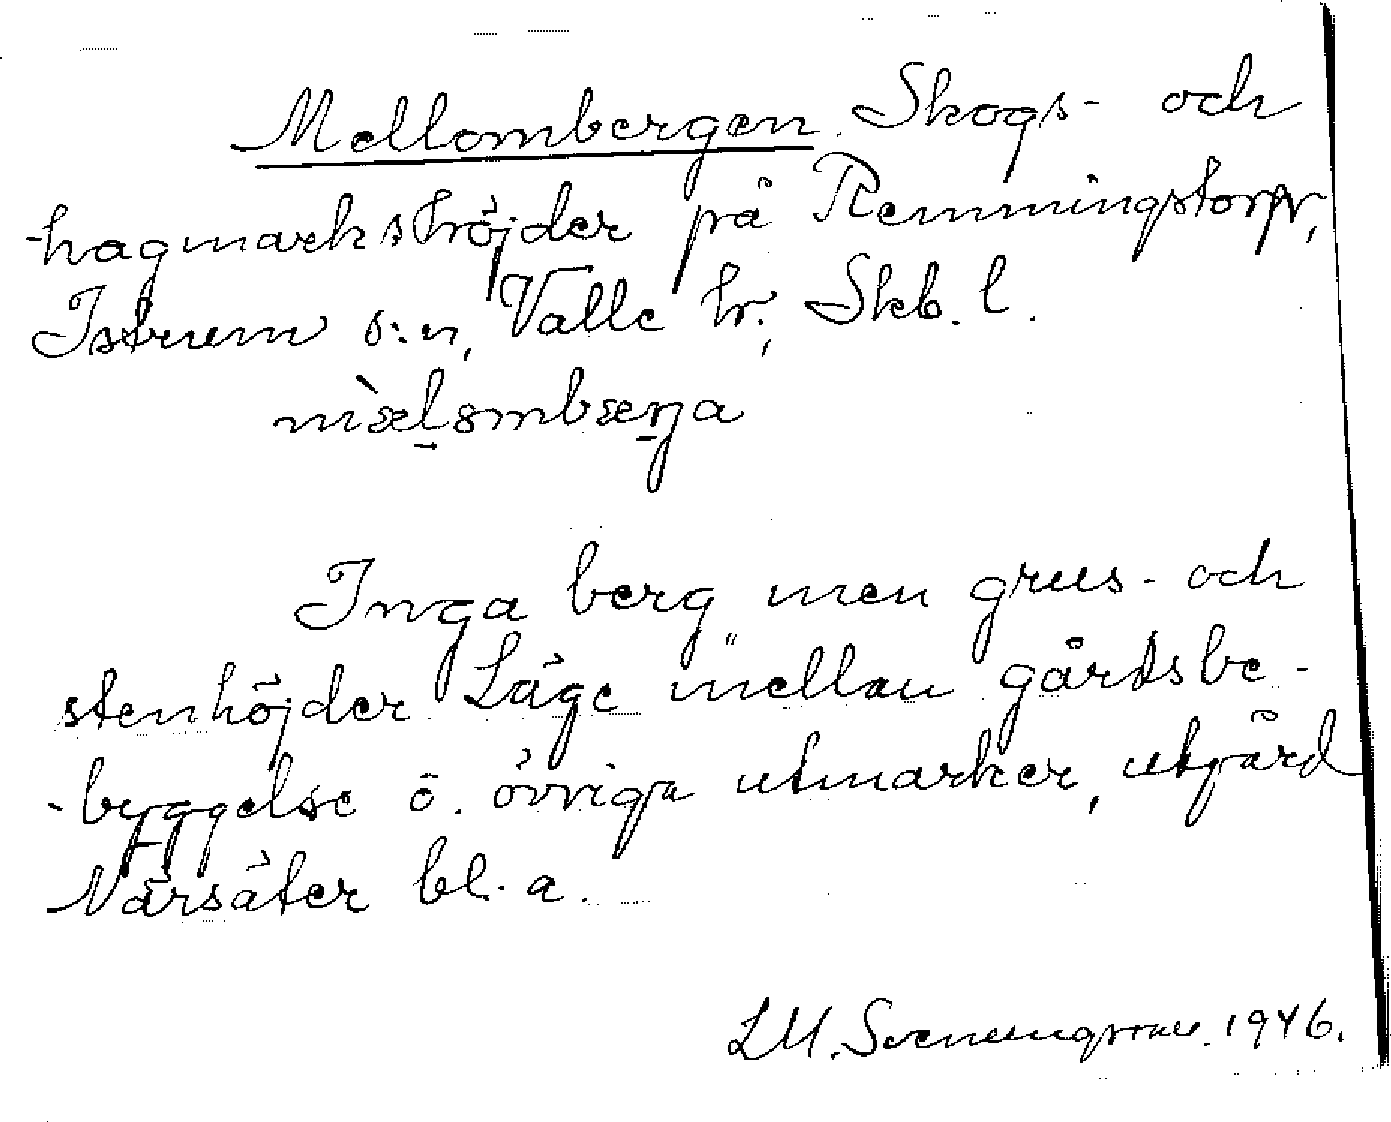 Mellombergen. Skogs- och
hagmarkshöjder på Remmingstorp,
Istrum s:n, Valle hr., Skb. l.
Inga berg men grus- och
stenhöjder. Läge mellan gårdsbe-
-byggelse o. övriga utmarker, utgård
Närsäter bl. a.
LM. Svenungsson. 1946.